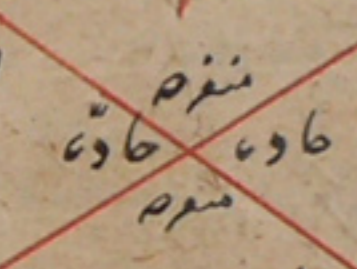 منفرجه
حاده حادّه
منفرجه